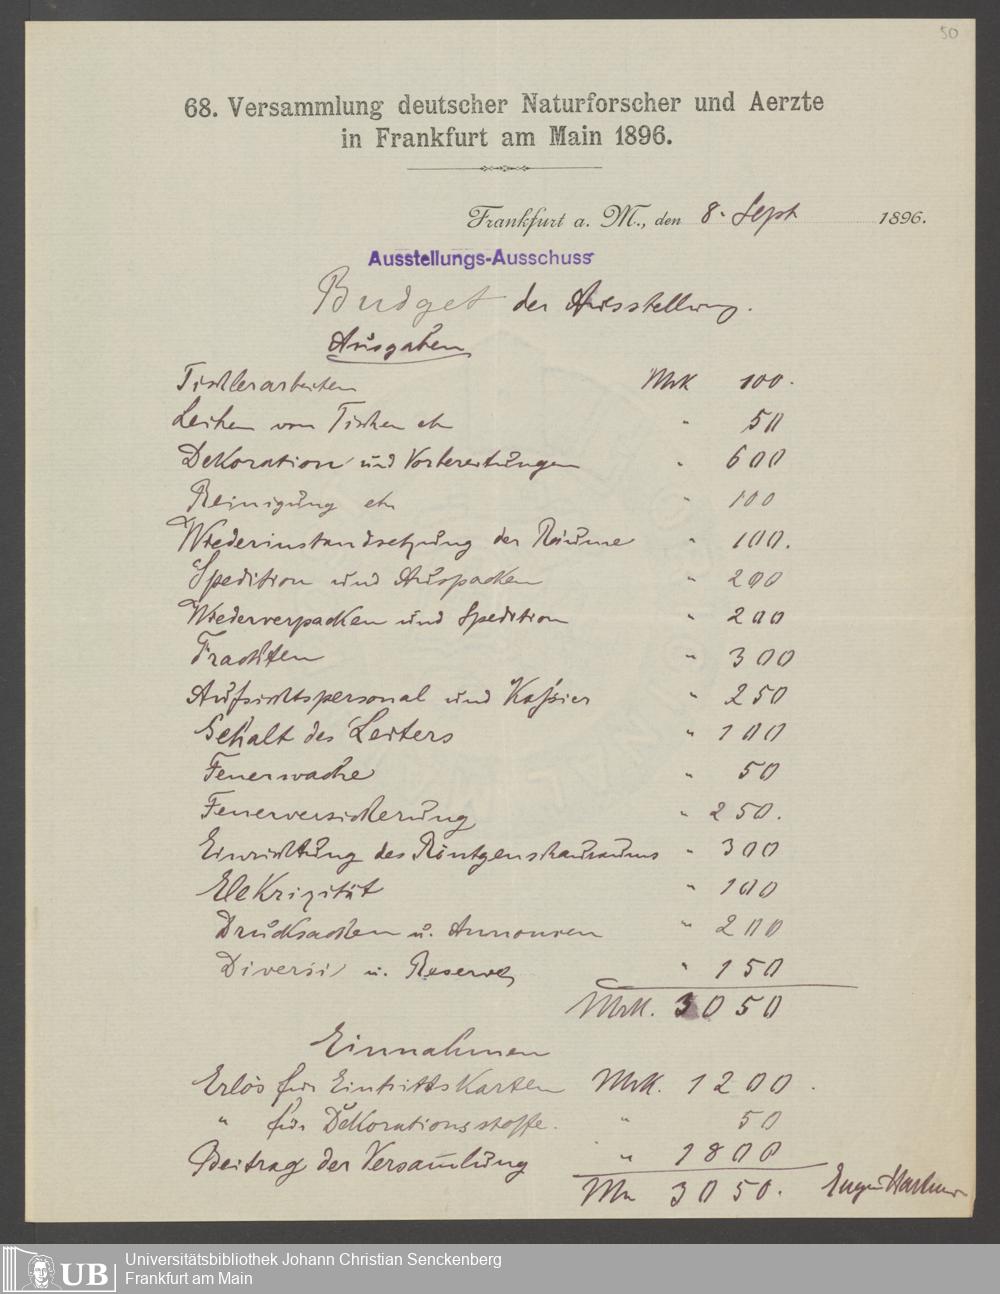 50
68. Versammlung deutscher Naturforscher und Aerzte
in Frankfurt am Main 1896.
Frankfurt a. M., den 8. Sept 1896.
Ausstellungs-Ausschuss
Budget der Ausstellung.
Ausgaben
Tischlerarbeiten Mrk 100.
Leihen von Tischen etc " 50
Dekoration und Vorbereitungen " 600
Reinigung etc " 100
Wiederinstandsetzung der Räume " 100.
Spedition und Auspacken " 200
Wiederverpacken und Spedition " 200
Frachten " 300
Aufsichtspersonal und Kassier " 250
Gehalt des Leiters " 100
Feuerwache " 50
Feuerversicherung " 250.
Einrichtung des Röntgenskauraums " 300
Elekrizität " 100
Drucksachen u. Annoncen " 200
Diversi u. Reserve " 150
Mrk. 3050
Einnahmen
Erlös für Eintrittskarten Mrk. 1200.
" für Dekorationsstoffe. " 50
Beitrag der Versam̅lung " 1800
Mk 3050. Eugen Hartmann
UB
Universitätsbibliothek Johann Christian Senckenberg
Frankfurt am Main